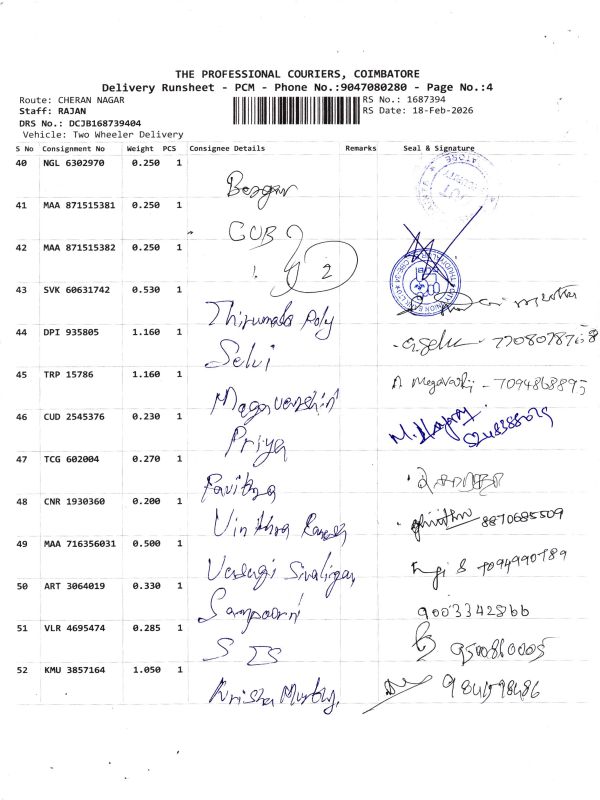 THE PROFESSIONAL COURIERS, COIMBATORE
Delivery Runsheet - PCM - Phone No.:9047080280 - Page No.:4
Route: CHERAN NAGAR RS No.: 1687394
Staff: RAJAN RS Date: 18-Feb-2026
DRS No.: DCJB168739404
Vehicle: Two Wheeler Delivery
S No Consignment No Weight PCS Consignee Details Remarks Seal & Signature
40 NGL 6302970 0.250 1
41 MAA 871515381 0.250 1
CUB
42 MAA 871515382 0.250 1
2
43 SVK 60631742 0.530 1
Thirumala Poly
44 DPI 935805 1.160 1
Selvi
45 TRP 15786 1.160 1
- 7094868895
46 CUD 2545376 0.230 1
Priya
47 TCG 602004 0.270 1
Pavithra
48 CNR 1930360 0.200 1
Vinithra Ramesh 8870685509
49 MAA 716356031 0.500 1
7094990789
50 ART 3064019 0.330 1
Sampoorni 9003342866
51 VLR 4695474 0.285 1
9500860005
52 KMU 3857164 1.050 1
Krishna Murthy, 9841598486